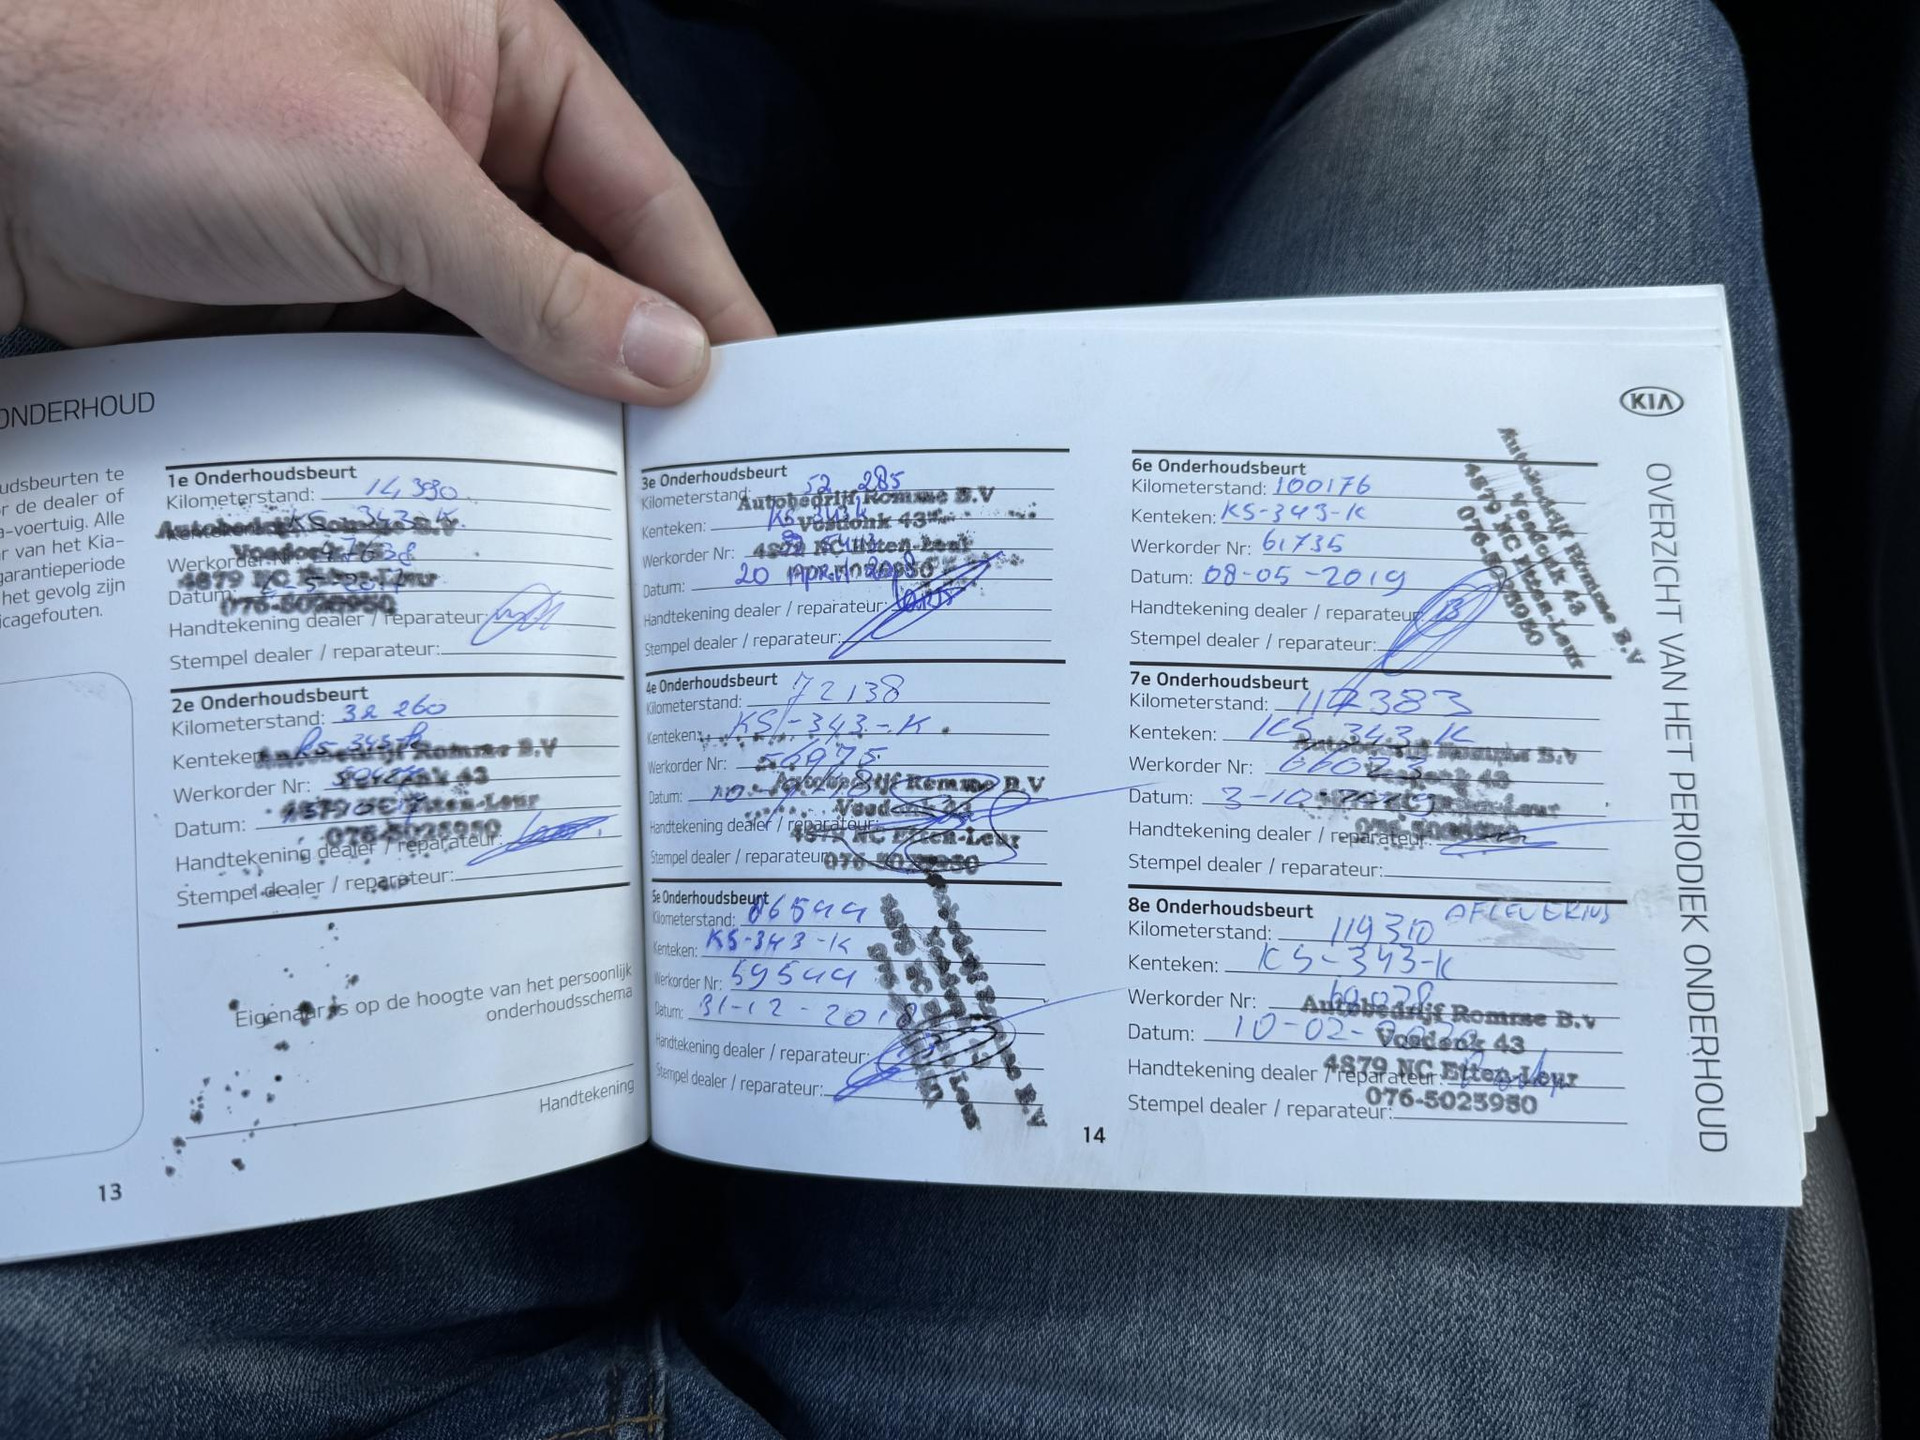 ONDERHOUD
udsbeurten te
r de dealer of
a-voertuig. Alle
r van het Kia-
garantieperiode
het gevolg zijn
icagefouten.
1e Onderhoudsbeurt
Kilometerstand: 14 390
KS-343-K
Werkorder Nr:
Datum:
076-5025950
Handtekening dealer / reparateur:
Stempel dealer / reparateur:
2e Onderhoudsbeurt
Kilometerstand: 32 260
Kenteken: KS-343-K
Autobedrijf Romme B.V
Werkorder Nr:
4879 NC Etten-Leur
Datum:
076-5025950
Handtekening dealer / reparateur:
Stempel dealer / reparateur:
Eigenaar is op de hoogte van het persoonlijk
onderhoudsschema
Handtekening
13
3e Onderhoudsbeurt
Kilometerstand: 52 285
Autobedrijf Romme B.V
Kenteken: KS-343-K
Vosdonk 43
Werkorder Nr:
4879 NC Etten-Leur
Datum: 20 April 2018
Handtekening dealer / reparateur:
Stempel dealer / reparateur:
4e Onderhoudsbeurt
Kilometerstand: 72138
Kenteken: KS-343-K
Werkorder Nr: 56975
Autobedrijf Romme B.V
Datum:
Vosdonk 43
Handtekening dealer / reparateur:
4879 NC Etten-Leur
Stempel dealer / reparateur:
076-5025950
5e Onderhoudsbeurt
Kilometerstand: 86544
Kenteken: KS-343-K
Werkorder Nr: 59544
Datum: 31-12-2018
Handtekening dealer / reparateur:
Stempel dealer / reparateur:
14
6e Onderhoudsbeurt
Kilometerstand: 100176
Kenteken: KS-343-K
Werkorder Nr: 61735
Datum: 08-05-2019
Handtekening dealer / reparateur:
Stempel dealer / reparateur:
Autobedrijf Romme B.V
Vosdonk 43
4879 NC Etten-Leur
076-5025950
7e Onderhoudsbeurt
Kilometerstand: 114383
Kenteken: KS-343-K
Autobedrijf Romme B.V
Werkorder Nr:
Vosdonk 43
Datum: 3-10-2019
4879 NC Etten-Leur
Handtekening dealer / reparateur:
Stempel dealer / reparateur:
8e Onderhoudsbeurt AFLEVERING
Kilometerstand: 119310
Kenteken: KS-343-K
Werkorder Nr:
Autobedrijf Romme B.V
Datum: 10-02-2020
Vosdonk 43
Handtekening dealer / reparateur:
4879 NC Etten-Leur
076-5025950
Stempel dealer / reparateur:
KIA
OVERZICHT VAN HET PERIODIEK ONDERHOUD